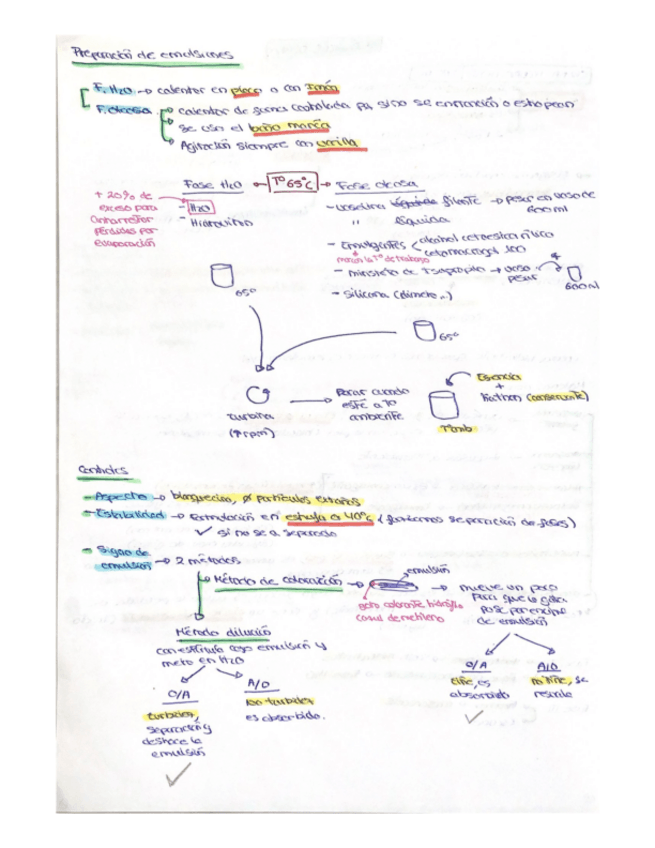 Preparación de emulsiones
F. H2O → calentar en placa o con imán
F. oleosa → calentar de forma controlada pq sino se
→ se usa el baño maría
→ Agitación siempre con varilla
Fase H2O ← Tº 65ºC → Fase oleosa
+ 20% de exceso para contrarrestar pérdidas por evaporación
- H2O
- Hidroviton
- Vaselina filante → pesar en vaso de 600 ml
" líquida
- Emulgentes < alcohol cetoestearílico
cetomacrogol 1000
marcan la Tº de trabajo
- miristato de isopropilo → vaso pesar
600 ml
- Silicona (dimeto..)
65º
65º
turbina
(↑ rpm)
→ Parar cuando esté a Tº ambiente
Esencia
+
Kathon (conservante)
Tamb
Controles
- Aspecto → blanquecino, Ø partículas extrañas
- Estabilidad → Formulación en estufa a 40ºC (forzamos separación de fases)
✓ si no se a separado
- Signo de emulsión → 2 métodos
→ Método de coloración →
emulsión
echo colorante hidrófilo
azul de metileno
→ muevo un poco para que la gota pase por encima de emulsión
O/A
tiñe, es absorbido
✓
A/O
no tiñe, se
Método dilución
con espátula cojo emulsión y meto en H2O
O/A
turbidez, separación y deshace la emulsión
✓
A/O
no turbidez
es absorbido.